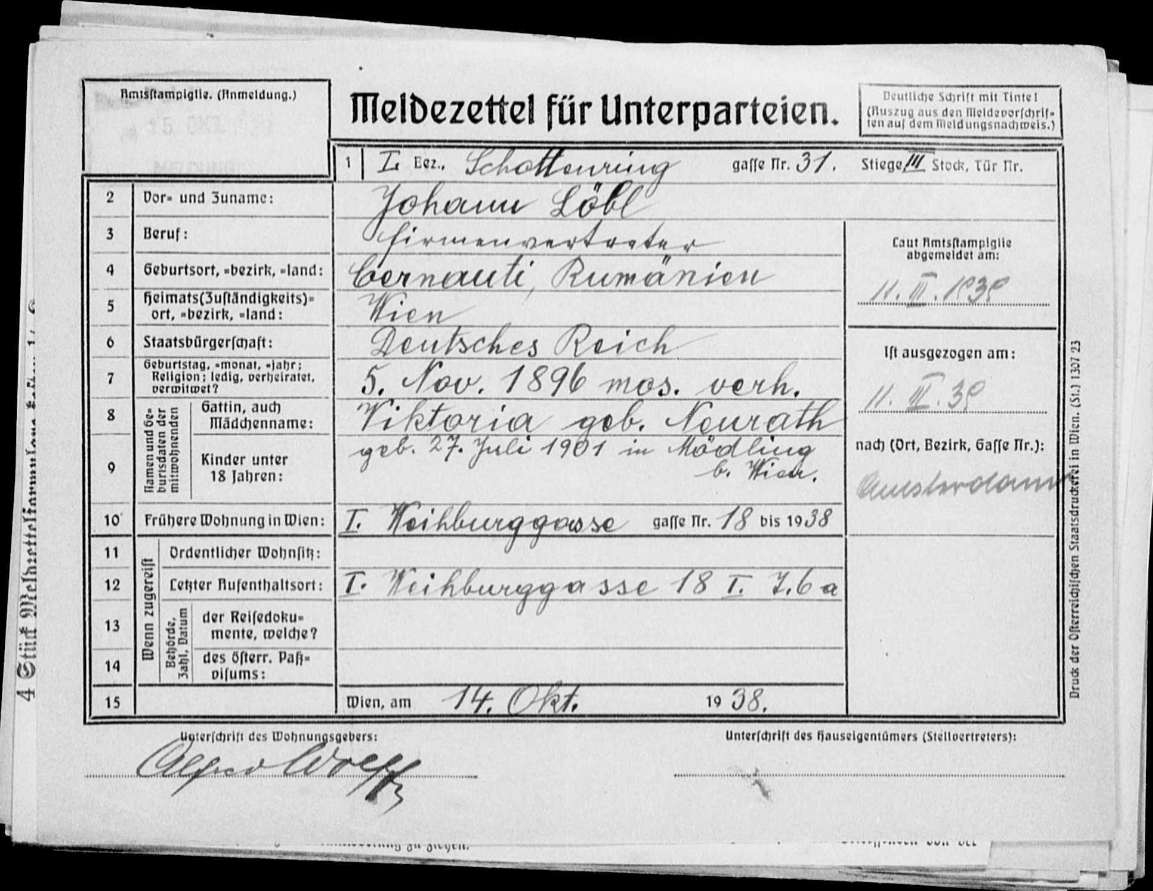 Amtsstampiglie. (Anmeldung.)
15. OKT. 1938
Meldezettel für Unterparteien.
Deutliche Schrift mit Tinte!
(Auszug aus den Meldevorschrif-
ten auf dem Meldungsnachweis.)
1 I. Bez., Schottenring gasse Nr. 31. Stiege III Stock, Tür Nr.
2 Vor- und Zuname: Johann Löbl
3 Beruf: Firmenvertreter
4 Geburtsort, -bezirk, -land: Cernauti, Rumänien
5 Heimats(Zuständigkeits)-
ort, -bezirk, -land: Wien
6 Staatsbürgerschaft: Deutsches Reich
7 Geburtstag, -monat, -jahr;
Religion; ledig, verheiratet,
verwitwet? 5. Nov. 1896 mos. verh.
Namen und Ge-
burtsdaten der
mitwohnenden
8 Gattin, auch
Mädchenname: Viktoria geb. Neurath
geb. 27. Juli 1901 in Mödling
b. Wien.
9 Kinder unter
18 Jahren:
10 Frühere Wohnung in Wien: I. Weihburggasse gasse Nr. 18 bis 1938
Wenn zugereist
11 Ordentlicher Wohnsitz:
12 Letzter Aufenthaltsort: I. Weihburggasse 18 I. T. 6a
Behörde,
Zahl, Datum
13 der Reisedoku-
mente, welche?
14 des österr. Paß-
visums:
15 Wien, am 14. Okt. 1938.
Laut Amtsstampiglie
abgemeldet am:
11. III. 1939
Ist ausgezogen am:
11. III. 39
nach (Ort, Bezirk, Gasse Nr.):
Amsterdam
Unterschrift des Wohnungsgebers:
Alfred Wolff
Unterschrift des Hauseigentümers (Stellvertreters):
Druck der Österreichischen Staatsdruckerei in Wien. (St.) 1307 23
4 Stück Meldzettelformulare kosten